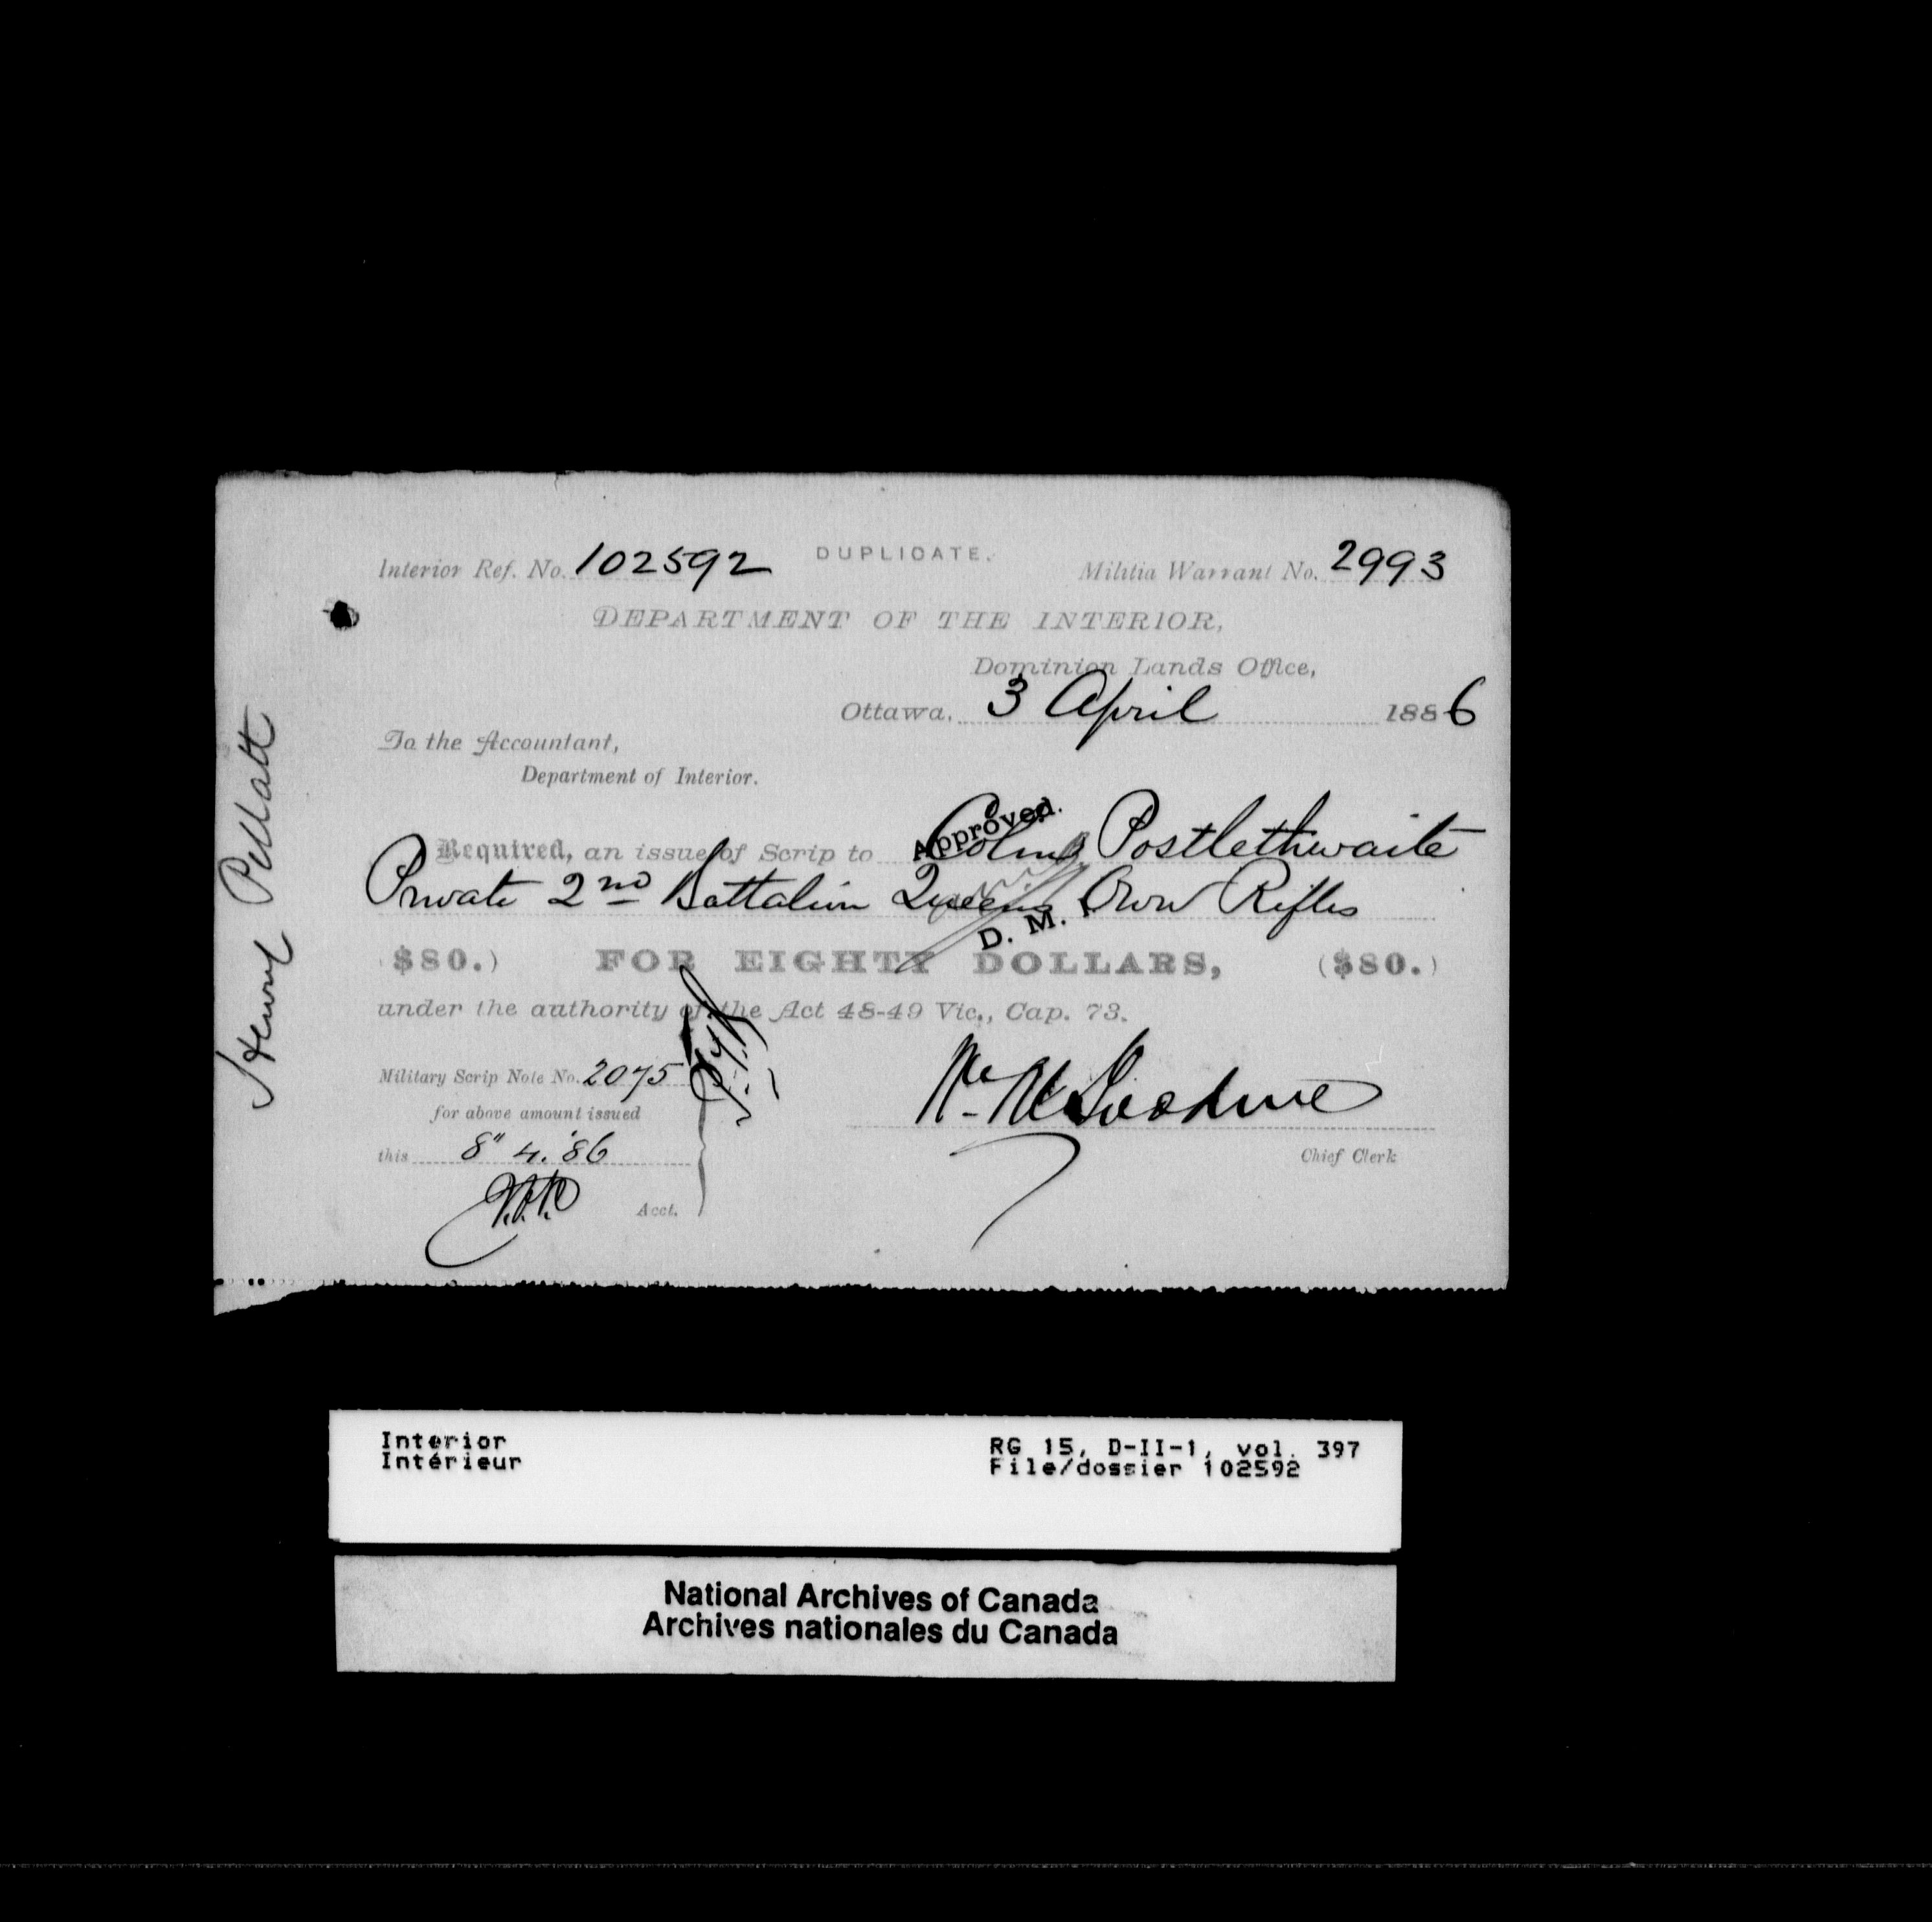 DUPLICATE.
Interior Ref. No. 102592
Militia Warrant No. 2993
DEPARTMENT OF THE INTERIOR,
Dominion Lands Office,
Ottawa, 3 April 1886
To the Accountant,
Department of Interior.
Approved.
Required, an issue of Scrip to Postlethwaite
Private 2nd Battalion Queens Own Rifles
D. M. I.
$80.) FOR EIGHTY DOLLARS, ($80.)
under the authority of the Act 48-49 Vic., Cap. 73.
Military Scrip Note No. 2075
for above amount issued
this 8" 4. '86
Acct.
Chief Clerk
Henry Pellatt
Interior
Intérieur
RG 15, D-II-1, vol. 397
File/dossier 102592
National Archives of Canada
Archives nationales du Canada